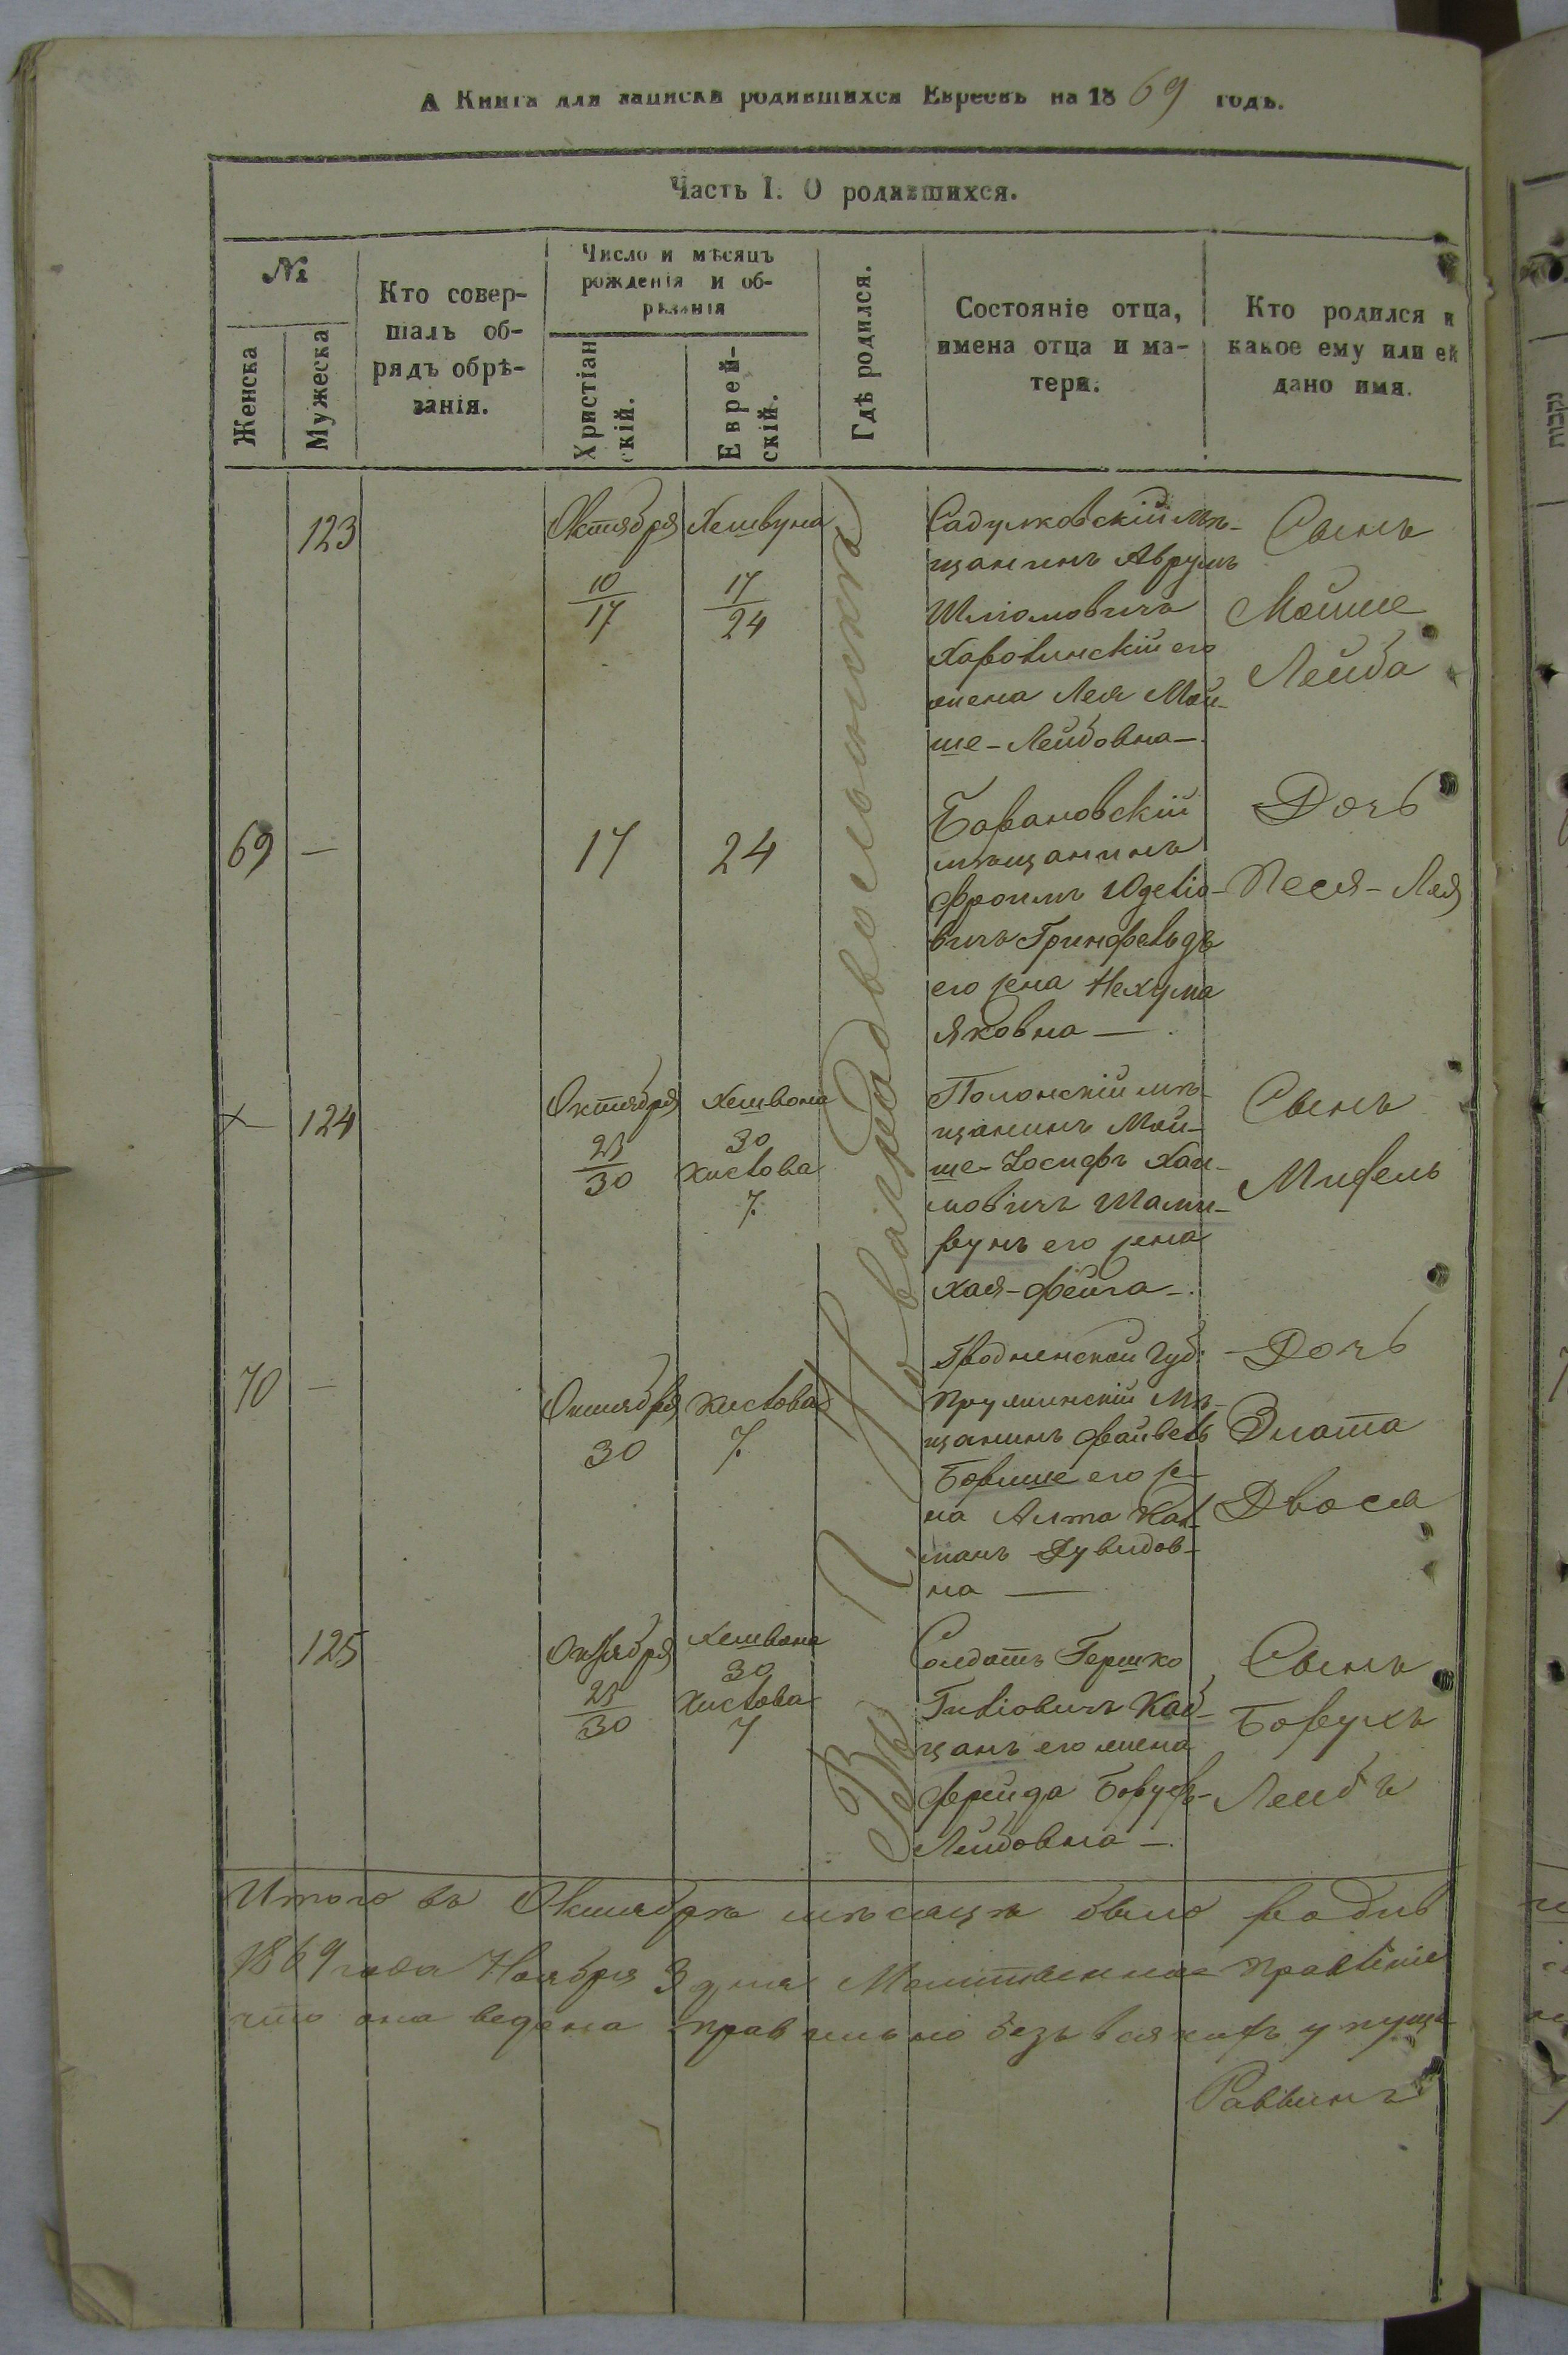 А Книга для записки родившихся Евреевъ на 1869 годъ.
Часть I. О родившихся.
№
Женска
Мужеска
Кто совер-
шалъ об-
рядъ обрѣ-
занія.
Число и мѣсяцъ
рожденія и об-
рѣзанія
Христіан
скій.
Еврей-
скій.
Гдѣ родился.
Состояніе отца,
имена отца и ма-
тери.
Кто родился и
какое ему или ей
дано имя.
123
Октября
10
17
Хешвуна
17
24
Садулковскій мѣ-
щанинъ Аврумъ
Шліомовичъ
его
жена Лея Мой-
ше-Лейбовна-.
Сынъ
Мойше
Лейба
69 —
17
24
Барановскій
мѣщанинъ
Фроимъ
вичъ Гринфельдъ
его жена Нехума
Яковна —.
Дочь
Песя-Лея
124
Октября
23
30
Хешвона
30
Кислова
7.
Полонскій мѣ-
щанинъ Мой-
ше-Іосифъ Хаи-
мовичъ
его жена
Хая-Фейга-.
Сынъ
70 —
Октября
30
Кислова
7.
Гродненской Губ:
Пружинскій мѣ-
щанинъ Файвель
его же-
на Алта
Дувидов-
на —
Дочь
Злата
Двося
125
Октября
23
30
Хешвона
30
Кислова
7
Солдатъ Гершко
Кац-
его жена
Фрейда Борухъ-
Лейбовна —.
Сынъ
Борухъ
Лейбъ
Итого въ Октябрѣ мѣсяцѣ было родив
1869 года Ноября 3 дня Молитвенное правленіе
что она ведена правильно безъ всякихъ упуще
Раввинъ